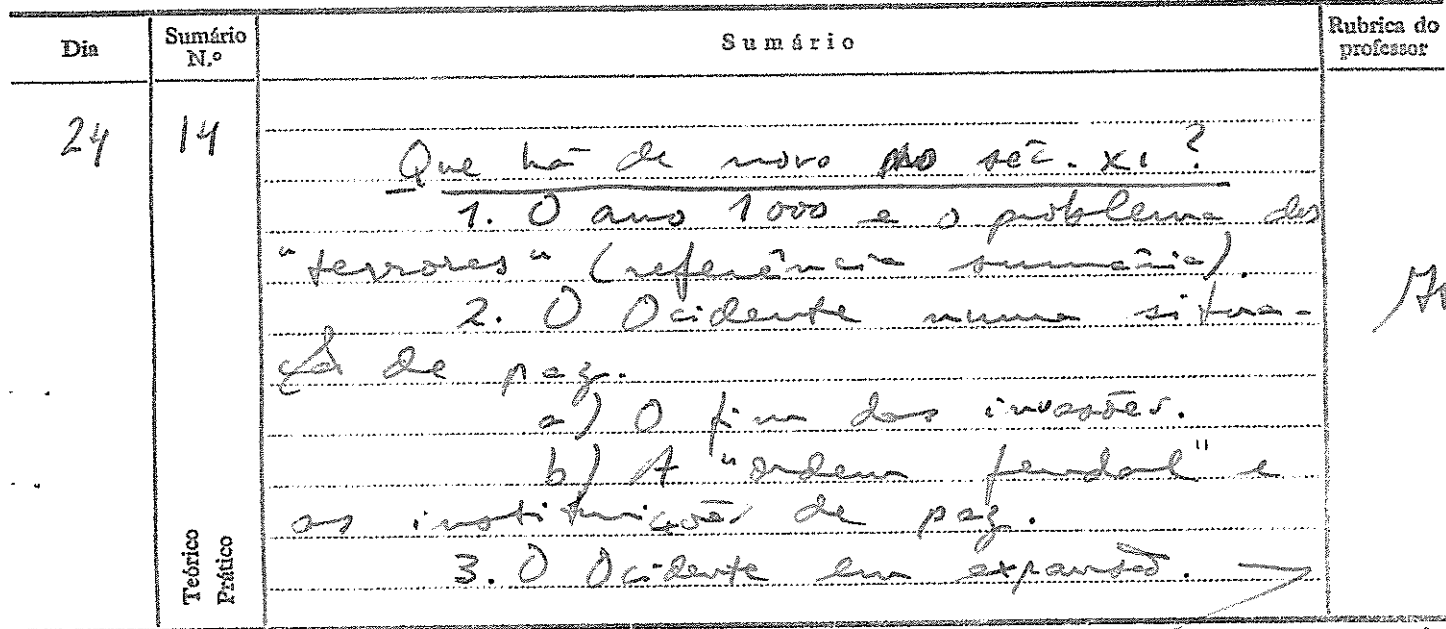 Dia Sumário N.º Sumário Rubrica do professor
24 14
Que há de novo no séc. XI?
1. O ano 1000 e o problema dos
"terrores" (referência sumária).
2. O Ocidente numa situa-
ção de paz.
a) O fim das invasões.
b) A "ordem feudal" e
as instituições de paz.
3. O Ocidente em expansão.
Teórico
Prático